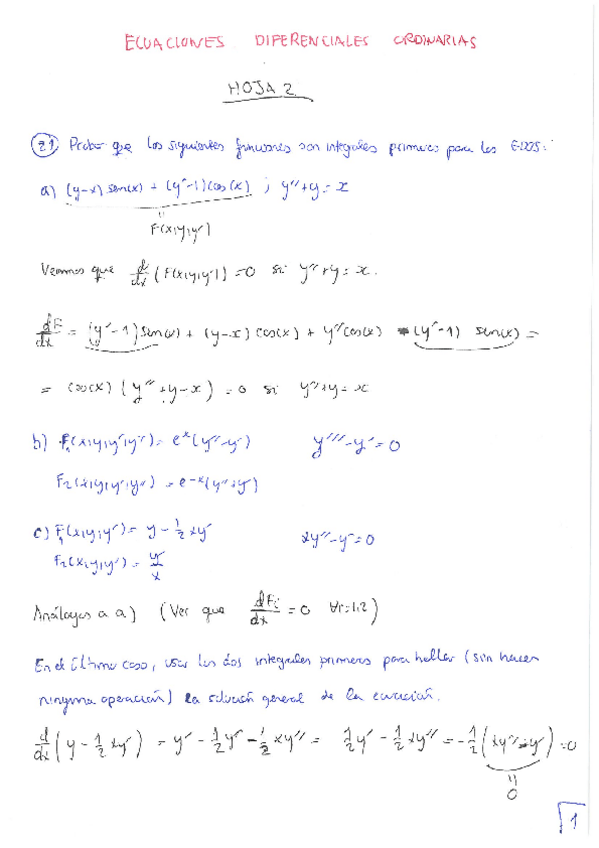 ECUACIONES DIFERENCIALES ORDINARIAS
HOJA 2
21 Probar que las siguientes funciones son integrales primeras para las EDOS:
a) (y-x) sen(x) + (y'-1)cos(x) ; y''+y=x
"
F(x,y,y')
Veamos que d/dx (F(x,y,y')) = 0 si y''+y=x.
dF/dx = (y'-1)sen(x) + (y-x) cos(x) + y''cos(x) - (y'-1) sen(x) =
= cos(x) (y''+y-x) = 0 si y''+y=x
b) F₁(x,y,y',y'') = e^x(y''-y') y'''-y'=0
F₂(x,y,y',y'') = e^-x(y''+y')
c) F₁(x,y,y') = y - 1/2 xy' xy''-y'=0
F₂(x,y,y') = y'/x
Análogas a a) (Ver que dFi/dx = 0 ∀i=1,2)
En el último caso, usar las dos integrales primeras para hallar (sin hacer
ninguna operación) la solución general de la ecuación.
d/dx (y - 1/2 xy') = y' - 1/2 y' - 1/2 xy'' = 1/2 y' - 1/2 xy'' = -1/2 (xy''-y') = 0
"
0
1